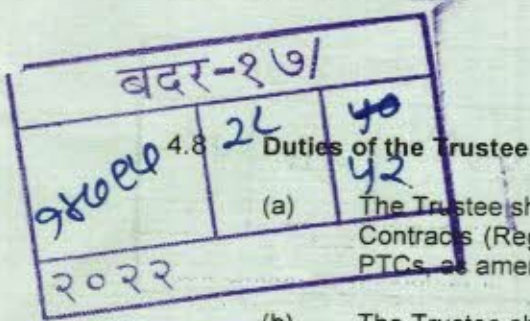 बदर-१७/
२८
५२
२०२२
4.8 Duties of the Trustee
(a) The Trustee
Contracts (Reg
PTCs, as amen
(b) The Trustee